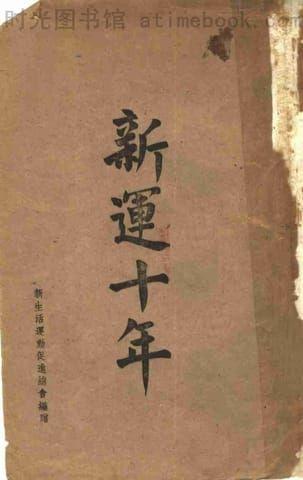 时光图书馆 atimebook.com
新運十年
新生活運動促進總會編贈